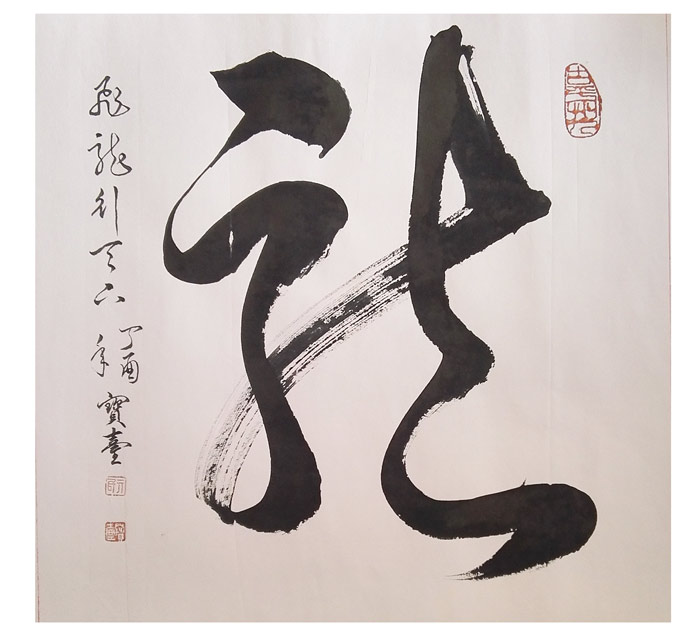 龍
飛龍行天下
丁酉年 寶臺